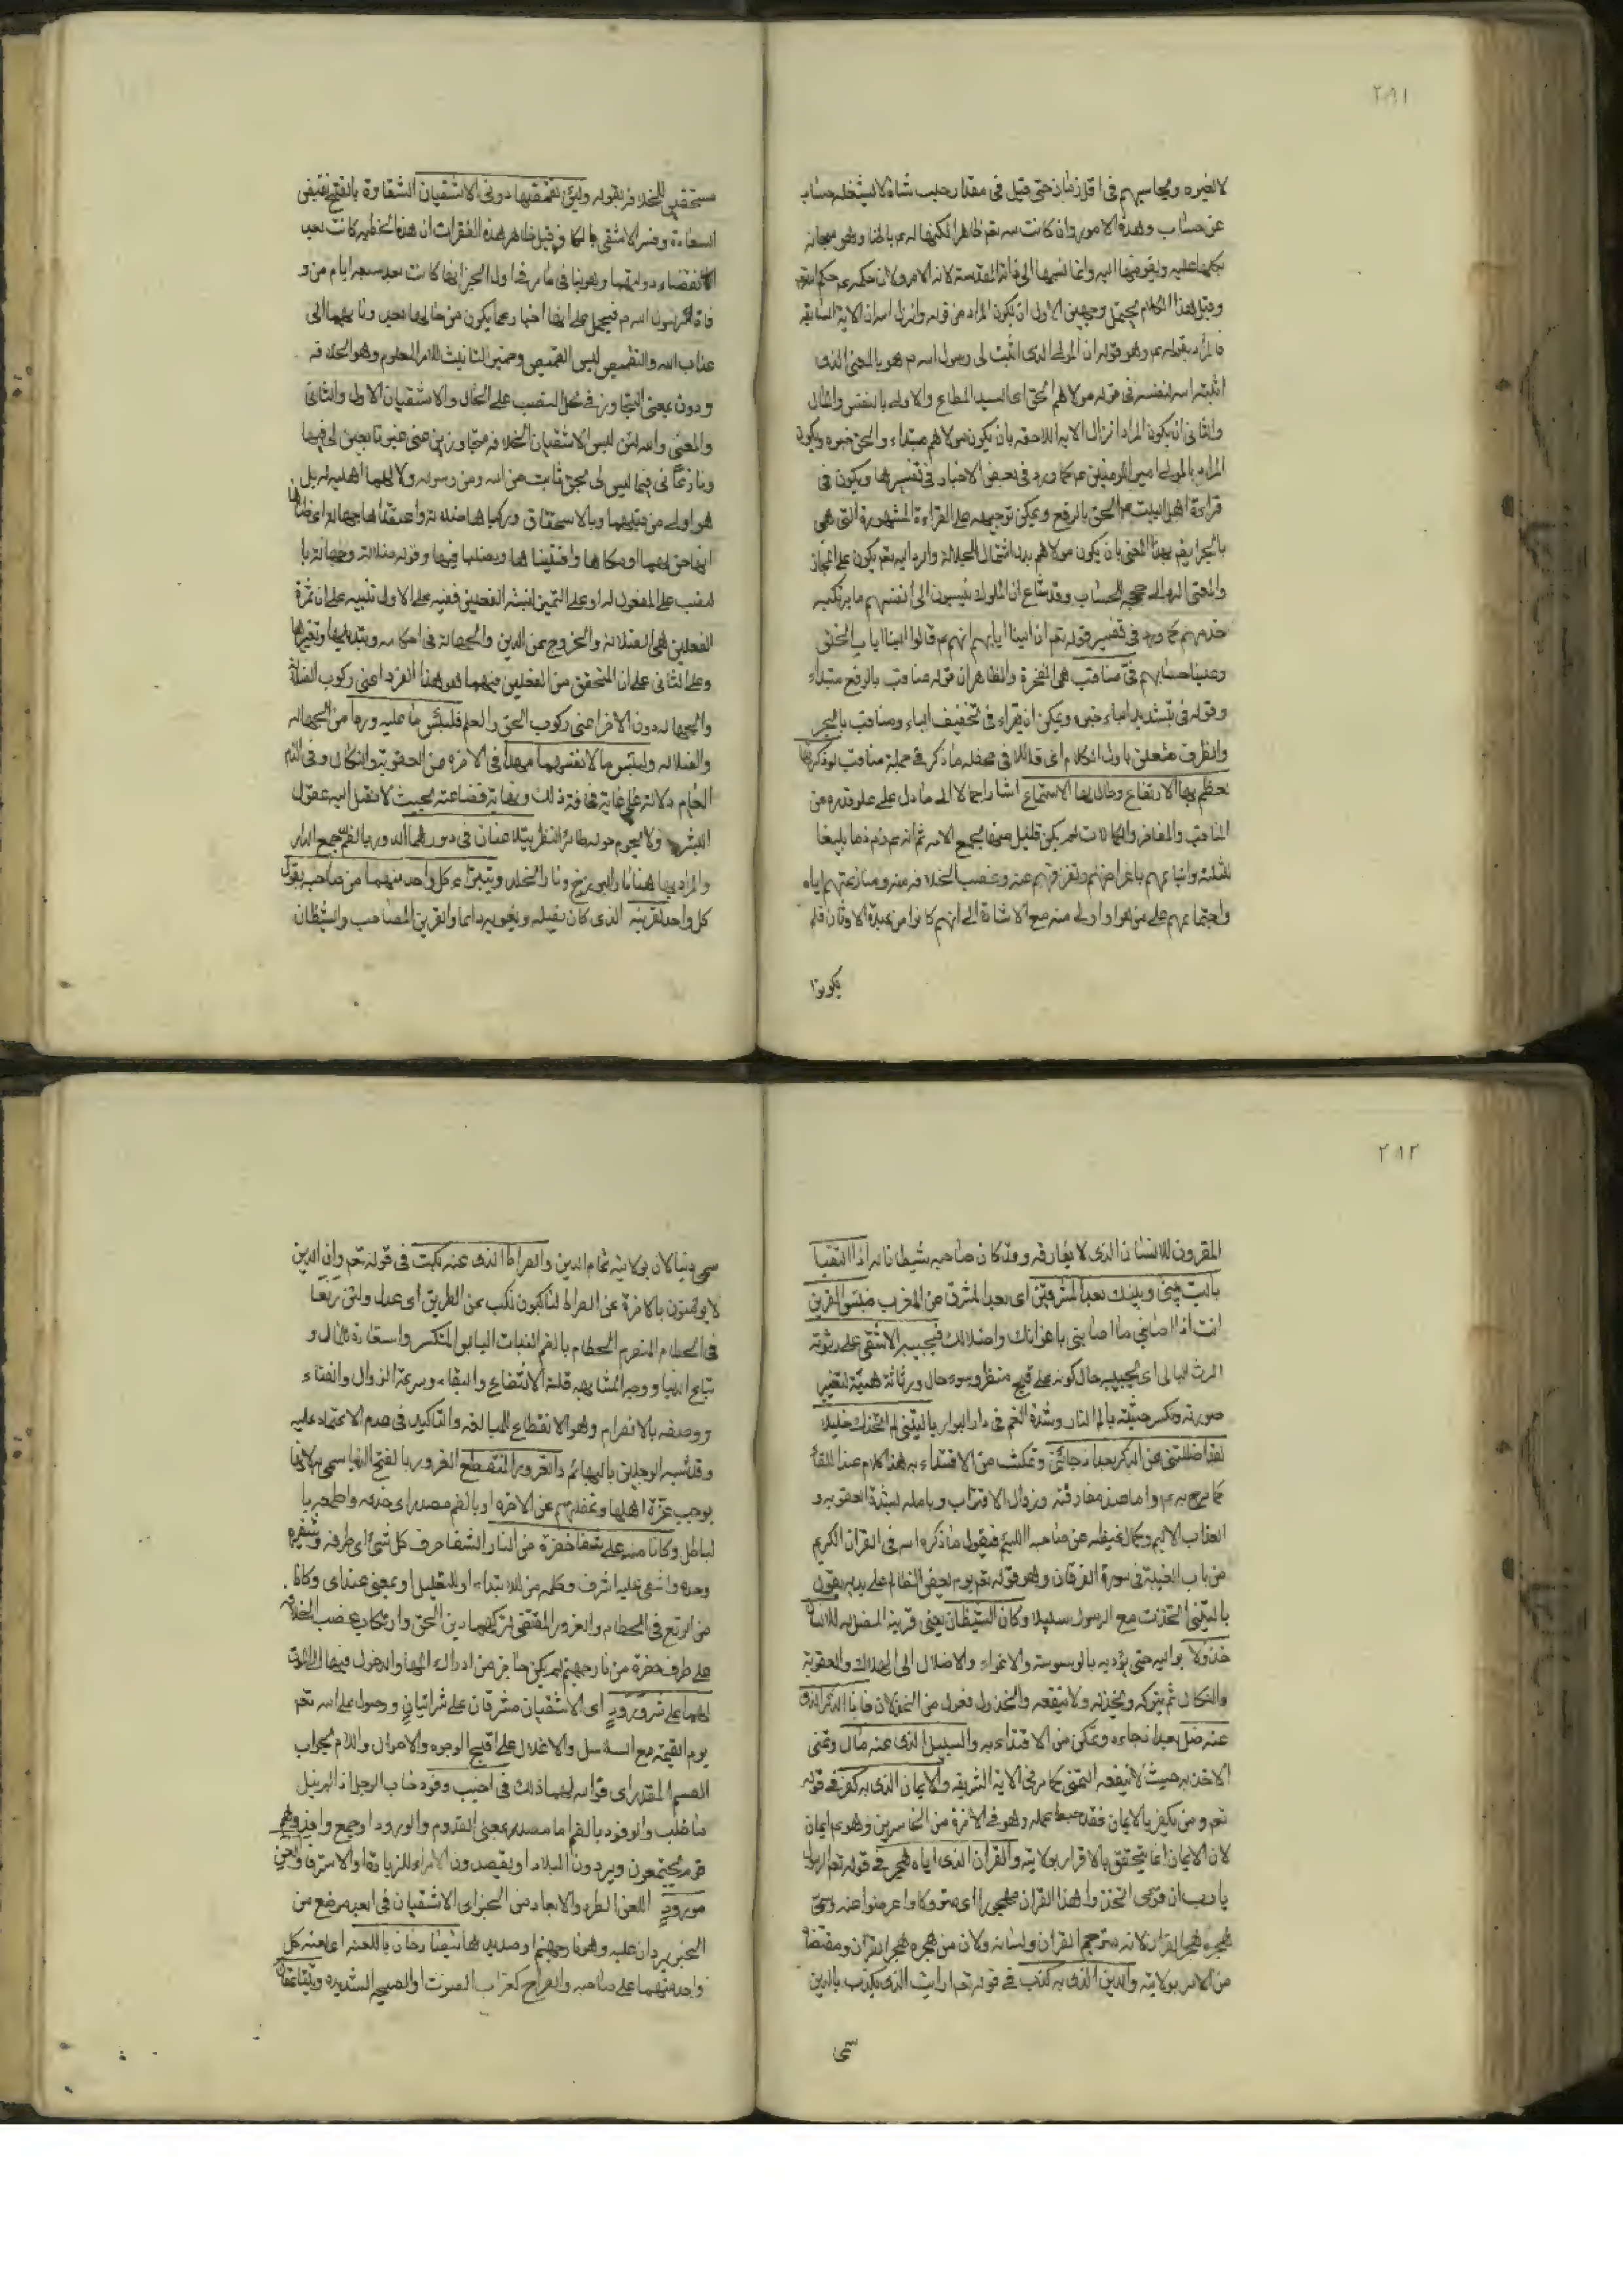 ٢٨١
لا لغيره ويحاسبهم في اقل زمان حتى قيل في مقدار حلب شاة لا يشغله حساب
عن حساب وهذه الامور وان كانت لله تعم ظاهرا لكنها له عم باطنا وهو سبحانه
عليه وانما نسبها الى ذاته المقدسة لانه الامر ولان حكمه عم حكم الله تعم
وقيل هذا الكلام يحتمل وجهين الاول ان يكون المراد من قوله وانزل الله ان الاية السابقة
بقوله عم وهو قوله ان المولى الذي اثبت لي رسول الله ص هو بالمعنى الذي
اثبته الله لنفسه في قوله مولاهم الحق اي السيد المطاع والاولى بالنفس والمال
والثاني ان يكون المراد انزال الاية اللاحقة بان يكون مولاهم مبتداء والحق خبره ويكون
المراد بالمولى امير المؤمنين عم كما ورد في بعض الاخبار في تفسيرها ويكون في
قراءة اهل البيت عم الحق بالرفع ويمكن توجيهه على القراءة المشهورة التي هي
بالجر بهذا المعنى بان يكون مولاهم بدل اشتمال للجلالة والرد اليه تعم يكون على المجاز
والمعنى الرد الى حججه للحساب وقد شاع ان الملوك ينسبون الى انفسهم ما يرتكبه
خدمهم كما ورد في تفسير قوله تعم ان الينا ايابهم انهم عم قالوا الينا اياب الخلق
وعلينا حسابهم في مناقب هي المفخرة والظاهر ان قوله مناقب بالرفع مبتداء
وقوله في بتشديد الياء خبره ويمكن ان يقراء في بتخفيف الياء ومناقب بالجر
والظرف متعلق باول الكلام اي قائلا في محفله ما ذكر في جملة مناقب لو ذكرتها
لعظم بها الارتفاع وطال بها الاستماع اشار اجمالا الى ما دل على علو قدره من
المناقب والمفاخر والكمالات لم يكن قليل منها لجميع الامة ثم انه عم ذم ذما بليغا
للثلثة واتباعهم باعراضهم وتفرقهم عنه وغصب الخلافة منه ومنازعتهم اياه
واجتماعهم على من هو اولى منه مع الاشارة الى انهم كانوا من عبدة الاوثان فلم
يكونوا
مستحقين للخلافة بقوله ولئن تقمصها دوني الاشقيان الشقاوة بالفتح نقيض
السعادة وفسر الاشقى وقيل ظاهر هذه الفقرات ان هذه الخطبة كانت بعد
انقضاء دولتهما وهو ينافي ما مر في اول الخبر انها كانت بعد سبعة ايام من و
فاة الرسول الله ص فيحمل على انها اخبار عما يكون من حالهما بعد ومالهما الى
عذاب الله والتقميص لبس القميص وضمير التانيث للامر المعلوم وهو الخلافة
ودون بمعنى التجاوز في محل النصب على الحال والاشقيان الاول والثاني
والمعنى والله لئن لبس الاشقيان الخلافة متجاوزين عني غير تابعين لي فيها
ونازعاني فيما ليس لي بحق ثابت من الله ومن رسوله ولا لهما اهلية له بل
هو اولى من قبلهما وبالاستحقاق وركباها ضلالة واعتقداها جهالة اي ظانا
انها حق لهما وقوله ضلالة وجهالة با
لنصب على المفعول له او على التميز لنسبة الفعلين ففيه على الاول تنبيه على ان ثمرة
الفعلين هي الضلالة والخروج عن الدين والجهالة في احكامه وتبديلها وتغيرها
وعلى الثاني على ان المتحقق من الفعلين منهما هو هذا الفرد اعني ركوب الضلالة
والجهالة دون الاخر اعني ركوب الحق والعلم فلبئس ما عليه وردا من الجهالة
والضلالة ولبئس ما لانفسهما مهدا في الاخرة من العقوبة والنكال وفي اللام
دلالة على غاية ذلك ونهاية فضاعته بحيث لا تصل اليه عقول
البشر ولا يحوم حوله طائر النظر يتلاعنان في دورهما الدور بالضم جمع الدار
والمراد بها هنا نار البرزخ ونار الخلد ويتبراء كل واحد منهما من صاحبه يقول
كل واحد لقرينه الذي كان يضله ويغويه دائما والقرين المصاحب والشيطان
٢٨٢
المقرون للانسان الذي لا يفارقه وقد كان صاحبه شيطانا له اذا التقيا
ياليت بيني وبينك بعد المشرقين اي بعد المشرق من المغرب فبئس القرين
انت اذا اصابني ما اصابني باغوائك واضلالك فيجيبه الاشقى على رثوثة
الرث البالي اي يجيبه حال كونه على قبح منظر وسوء حال ورثاثة هيئة لتغير
صورته وكسر هيئته بالم النار وشدة الغم في دار البوار يا ليتني لم اتخذك خليلا
لقد اضللتني عن الذكر بعد اذ جائني وتمكنت من الاقتداء به هذا كلام عند اللقاء
كما صرح به عم واما عند مفارقته وزوال الاقتراب وتامله لشدة العقوبة و
العذاب الاليم وكمال غيظه عن صاحبه اللئيم فيقول ما ذكره الله في القران الكريم
من باب الغيبة في سورة الفرقان وهو قوله تعم يوم يعض الظالم على يديه يقول
يا ليتني اتخذت مع الرسول سبيلا وكان الشيطان يعني قرينه المضل له للانسان
خذولا يواليه حتى يؤديه بالوسوسة والاغواء والاضلال الى الهلاك والعقوبة
والنكال ثم يتركه ويخذله ولا ينفعه والخذول فعول من الخذلان فانا الذكر الذي
عنه ضل بعد اذ جاءه وتمكن من الاقتداء به والسبيل الذي عنه مال وتمنى
الاخذ به حيث لا ينفعه التمني كما مر في الاية الشريفة والايمان الذي به كفر في قوله
تعم ومن يكفر بالايمان فقد حبط عمله وهو في الاخرة من الخاسرين وهو عم ايمان
لان الايمان انما يتحقق بالاقرار بولايته والقران الذي اياه هجر في قوله تعم
يا رب ان قومي اتخذوا هذا القران مهجورا اي متروكا واعرضوا عنه وسمي
هجره هجر القران لانه مترجم القران ولسانه ولان من هجره هجر القران ومقتضاه
من الامر بولايته والدين الذي به كذب في قوله تعم ارايت الذي يكذب بالدين
سمي
سمي دينا لان بولايته تمام الدين والصراط الذي عنه نكب في قوله تعم وان الذين
لا يؤمنون بالاخرة عن الصراط لناكبون نكب عن الطريق اي عدل ولئن رتعا
في الحطام المنصرم الحطام بالضم النبات اليابس المتكسر واستعاره للمال و
متاع الدنيا ووجه المشابهة قلة الانتفاع والبقاء وسرعة الزوال والفناء
ووصفه بالانصرام وهو الانقطاع للمبالغة والتاكيد في عدم الاعتماد عليه
وقد شبه الرجلين بالبهائم والغرور المنقطع الغرور بالفتح الدنيا سمي به لانها
يوجب غرة اهلها وغفلتهم عن الاخرة او بالضم مصدر اي خدعه واطمعه با
لباطل وكانا منه على شفا حفرة من النار الشفا حرف كل شئ اي طرفه وشفيره
وحده واشفى عليه اشرف وكلمة من للابتداء او للتعليل او بمعنى عند اي وكانا
من الرتع في الحطام والغرور المقتضي لتركهما دين الحق وارتكاب غصب الخلافة
على طرف حفرة من نار جهنم لم يكن حاجز من ادراك المها والدخول فيها الا الموت
لهما على شر ورود اي الاشقيان مشرفان على شر اتيان ووصول على الله تعم
يوم القيمة مع السلاسل والاغلال على اقبح الوجوه والاحوال واللام لجواب
القسم المقدر اي فوالله لهما ذلك في اخيب وفود خاب الرجل اذا لم ينل
ما طلب والوفود بالضم اما مصدر بمعنى القدوم والورود او جمع وافد وهم
قوم يجتمعون ويردون البلاد او يقصدون الامراء للزيارة او الاسترفاد والعن
مورود اللعن الطرد والابعاد من الخير اي الاشقيان في ابعد موضع من
الخير يردان عليه وهو نار جهنم يتصارخان باللعنة اي لعنة كل
واحد منهما على صاحبه والصراخ كغراب الصوت او الصيحة الشديدة ويتناعقان